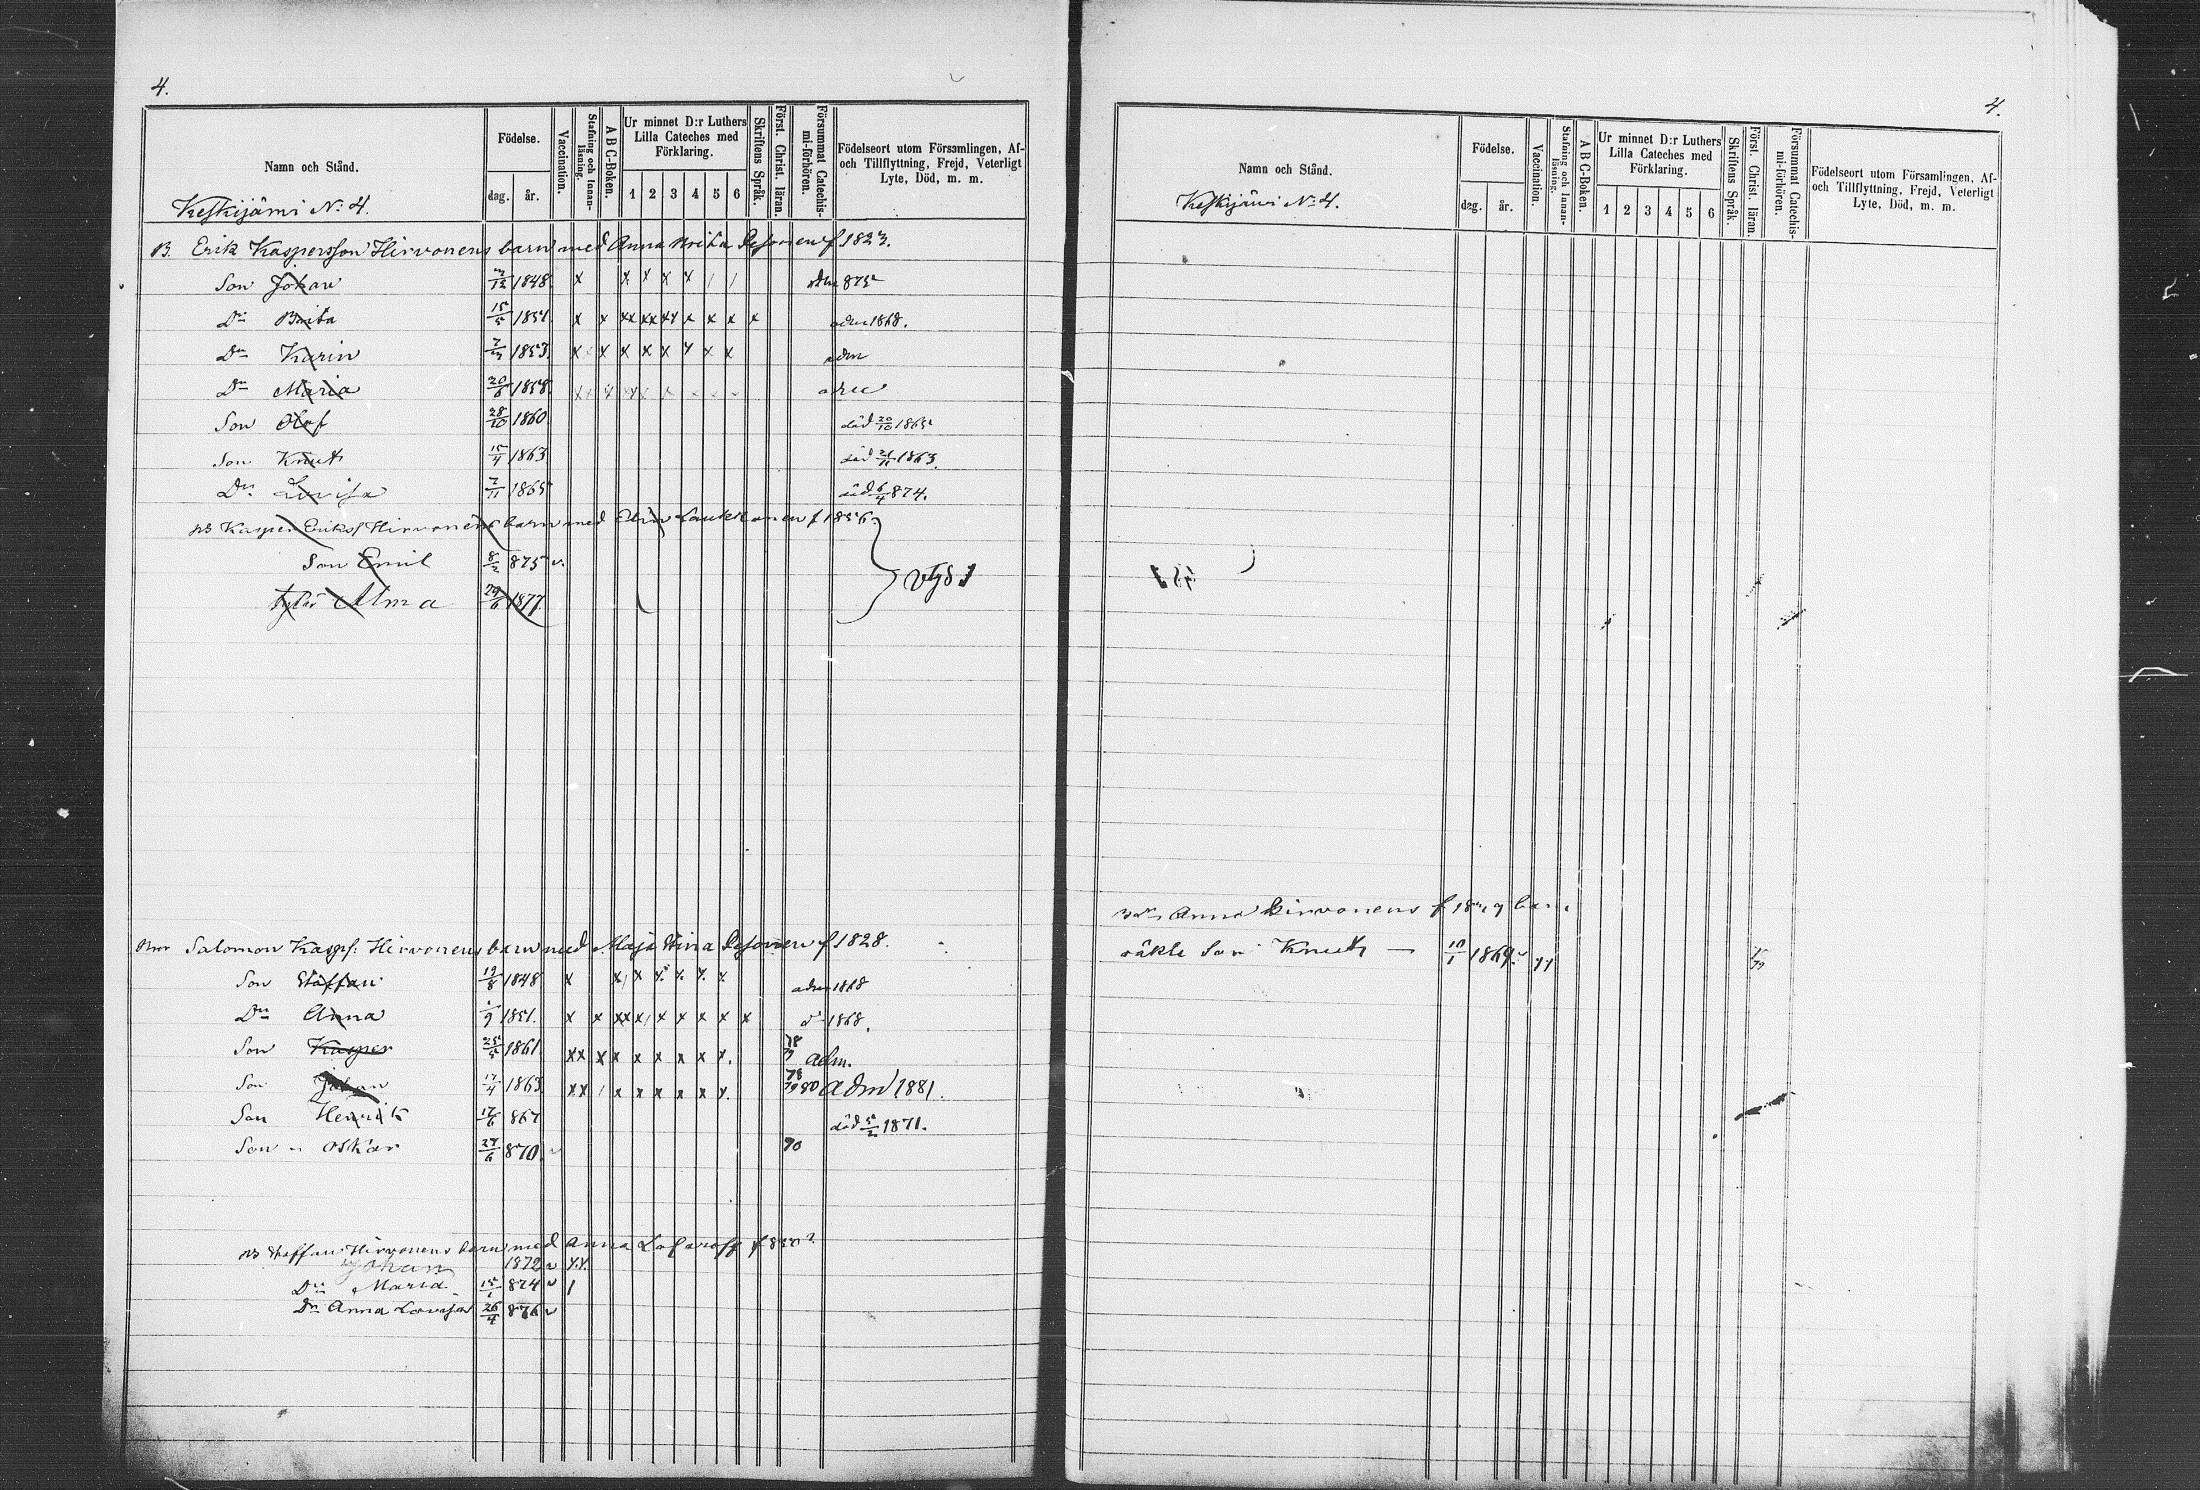 4.
Namn och Stånd.
Födelse.
dag. år.
Vaccination.
Stafning och Innan-läsning.
A B C-Boken.
Ur minnet D:r Luthers Lilla Cateches med Förklaring.
1 2 3 4 5 6
Skriftens Språk.
Först. Christ. läran.
Försummat Catechis-mi-förhören.
Födelseort utom Församlingen, Af- och Tillflyttning, Frejd, Veterligt Lyte, Död, m. m.
Keskijärvi N:o 4.
B. Erik Kaspersson Hirvonens barn med Anna Brita f 1823.
Son Johan 1848. x x x x x / / adm 875
Dn Brita 15/5 1851. x x xx xx xx x x x x adm 1868.
Dn Karin 1853. x x x x x x x x adm
Dn Maria 20/6 1858.
Son Olof 28/10 1860. död 20/10 1865
Son Knut 15/4 1863 död 21/11 1863.
Dn Lovisa 7/11 1865 död 6/4 874.
Kasper Eriks: Hirvonens barn med Elin Laukkanen f 1856
Son Emil 8/2 875 v.
Alma 29/6 1877
Salomon Kaspss: Hirvonens barn med Maja Stina f 1828.
Son Staffan 19/8 1848 x adm 1868
Dn Anna 1851. x x xx x x x x x x d:o 1868.
Son Kasper 25/5 1861 xx x x x x x x x. 78 adm.
Son Johan 17/4 1863. xx / x x x x x x. 78 79 80 adm 1881.
Son Henrik 17/6 867 död 5/2 1871.
Son Oskar 27/6 870. v 90
Staffan Hirvonens barn med Anna
Johan 1872 v
Dn Maria 15/1 874 v /
Dn Anna Lovisa 26/4 876 v
4.
Namn och Stånd.
Födelse.
dag. år.
Vaccination.
Stafning och Innan-läsning.
A B C-Boken.
Ur minnet D:r Luthers Lilla Cateches med Förklaring.
1 2 3 4 5 6
Skriftens Språk.
Först. Christ. läran.
Försummat Catechis-mi-förhören.
Födelseort utom Församlingen, Af- och Tillflyttning, Frejd, Veterligt Lyte, Död, m. m.
Keskijärvi N:o 4.
Anna Hirvonens
oäkta Son Knut — 10/1 1869.